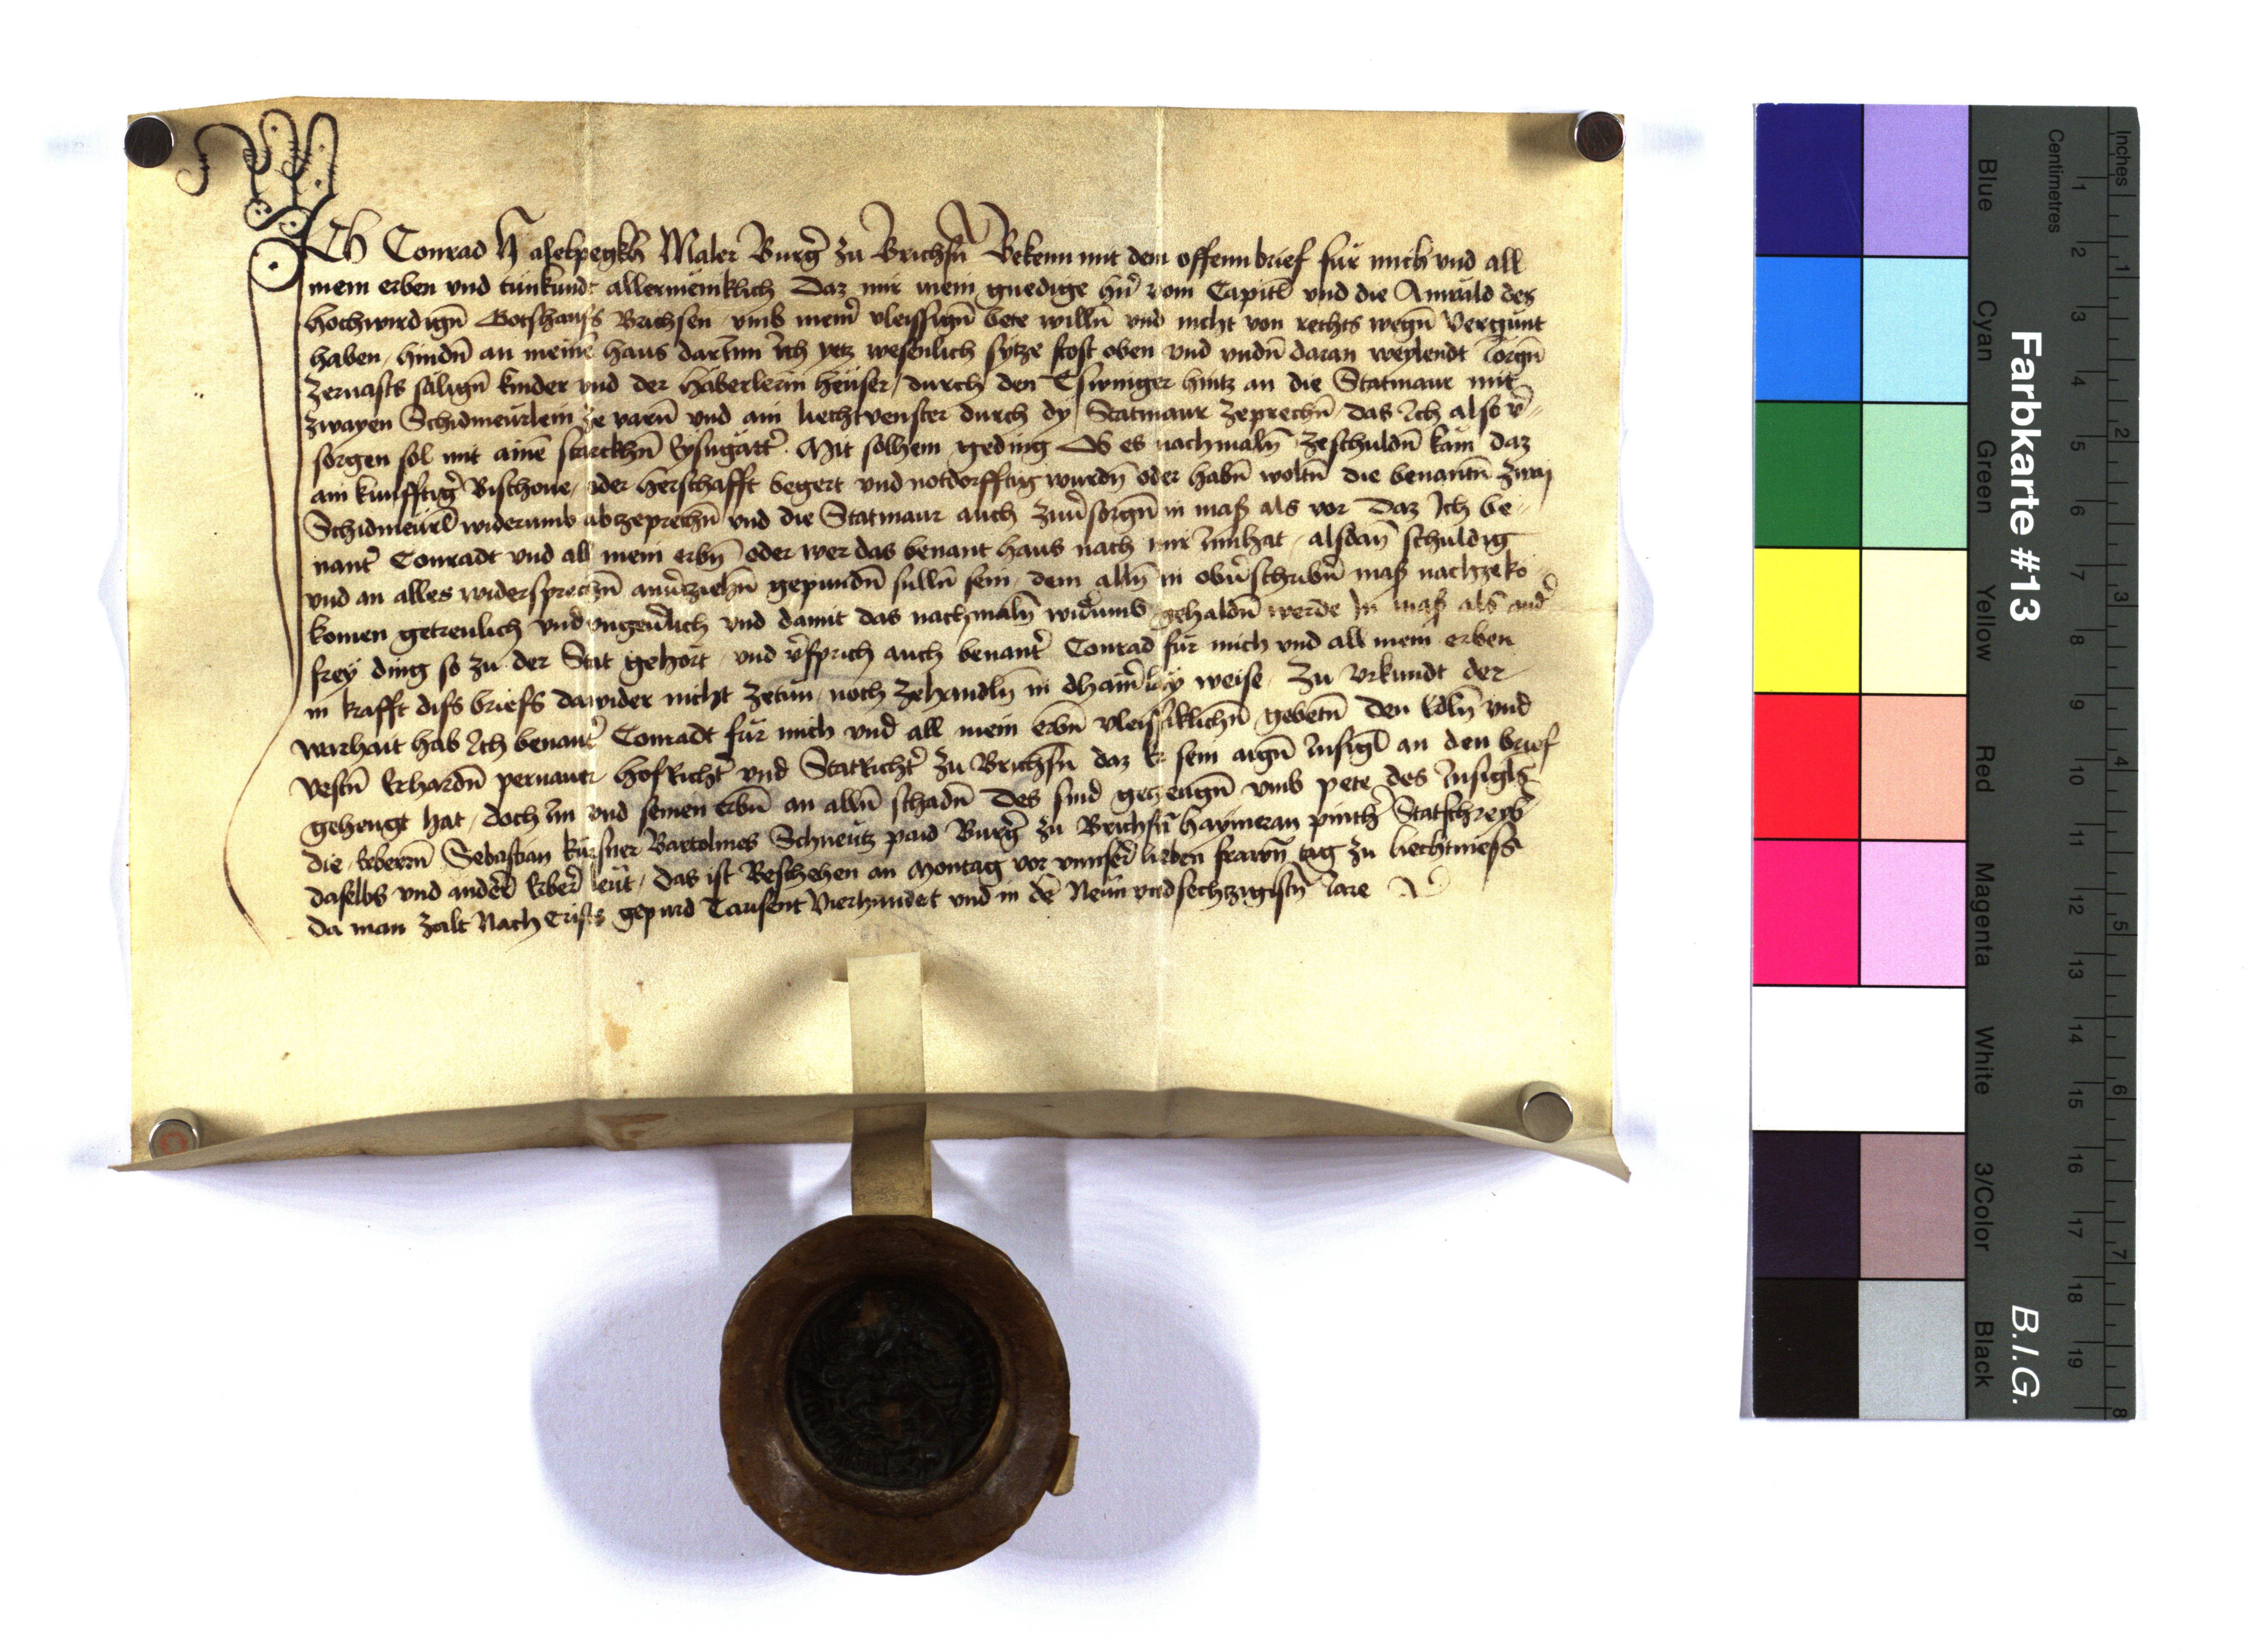 Ich Conrad Haselpegkh Maler Burg̃ zu Brichsn̄ Bekenn mit dem offenn brief für mich vnd all
mein erben vnd tünkundt allermeniklich Daz mir mein gnedige hn̄ vom Capitl̄ vnd die Anwäld des
hochwirdign̄ Gotshauss Brichsen vmb mein̄ vleissign̄ bete willn̄ vnd nicht von rechts wegn̄ Vergünt
haben, hindn̄ an meine͂ haus darInn Ich yetz wesenlich sytze stost oben vnd vndn̄ daran weylendt Iörgn̄
Zeruasts sälign̄ kinder vnd der Häberlerin heüser, durch den hintz an die Statmaur mit
zwayen Schidmeürlein ze varn̄ vnd ain liechtvenster durch dy Statmaur zeprechn̄, das Ich also v̄
sorgen sol mit aine͂ starckhn̄ Eysngätt̄. Mit solhem geding Ob es nachmaln̄ zeschuldn̄ käm daz
ain künfftig̃ Bischoue, oder herschafft begert vnd notdorfftig wurdn̄ oder habn̄ woltn̄ die benantn̄ zway
Schidmeürl̄ widerumb abzeprechn̄ vnd die Statmaur auch zuu̇sorgn̄ in mass als vor Daz Ich be
nant̄ Conradt vnd all mein erbn̄ oder wer das benant haus nach mir Innhat, alsdan̄ schuldig
vnd an alles widersprechn̄ anu̇ziehn̄ gepundn̄ sulln̄ sein, dem alln̄ in obu̇schribn̄ mass nachzeko
komen getreulich vnd vngeu̇lich vnd damit das nachmaln̄ widumb gehaldn̄ werde In mass als and̄
frey ding so zu der Stat gehört, vnd v̄sprich auch benant̄ Conrad für mich vnd all mein erben
in krafft diss briefs dawider nicht zetün, noch zehandln̄ in dhain̄lay weise, Zu vrkundt der
warhait hab Ich benant̄ Conradt für mich vnd all mein erbn̄ vleissiklichn̄ gebetn̄ Den Edln̄ vnd
vestn̄ Erhardn̄ pernauer Hofricht̄ vnd Statricht̄ Zu Brichsn̄ daz Er sein aign̄ Insigl̄ an den brief
gehengt hat, doch Im vnd seinen erbn̄ an alln̄ schadn̄ Des sind gezeugn̄ vmb pete des Insigls
die Erberrn̄ Sebastian kürsner Bartolmes Schneütz paid Burg̃ zu Brichsn̄ Haymeran Statschreyb̄
daselbs vnd ander̄ Erber̄ leüt, das ist Beschehen an Montag vor vnnser̄ lieben frawn̄ tag zu liechtmess
da man zalt Nach Cristi gepurd Tausent Vierhundert vnd in de͂ Neün vndsechzigistn̄ Iare
Farbkarte #13
B.I.G.
Blue
Cyan
Green
Yellow
Red
Magenta
White
3/Color
Black
Centimetres
1 2 3 4 5 6 7 8 9 10 11 12 13 14 15 16 17 18 19
Inches
1 2 3 4 5 6 7 8